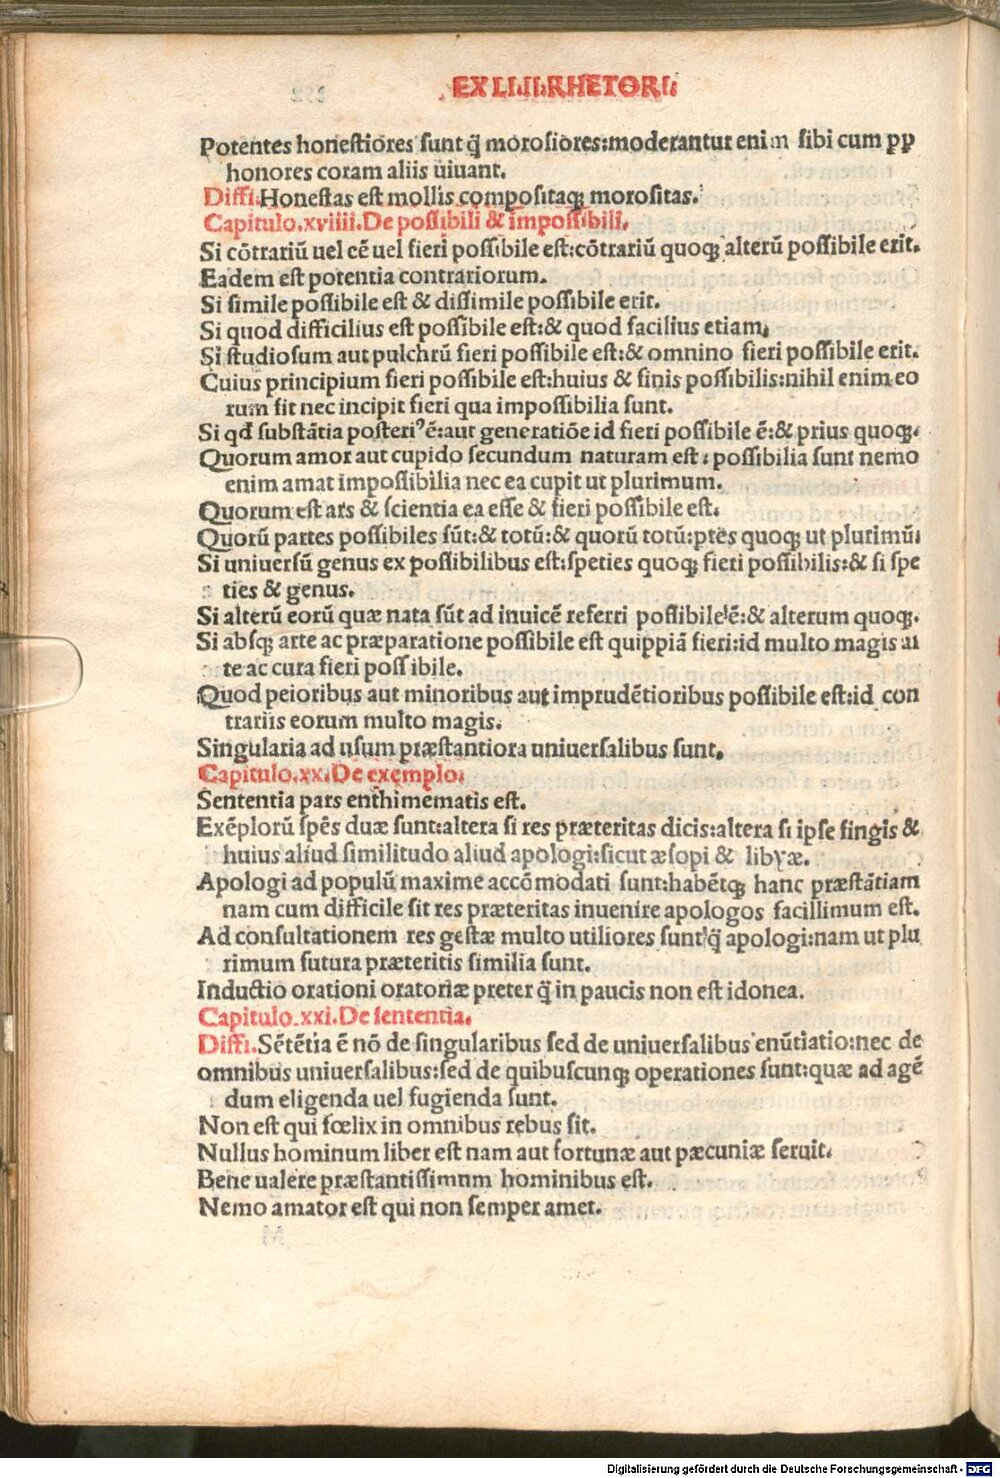 EX LI.II.RHETORI.
Potentes honestiores sunt q̃ morosiores:moderantur enim sibi cum pp
honores coram aliis uiuant.
Diffi.Honestas est mollis compositaqꝫ morositas.
Capitulo.xviiii.De possibili & impossibili.
Si cõtrariũ uel cẽ uel fieri possibile est:cõtrariũ quoqꝫ alterũ possibile erit.
Eadem est potentia contrariorum.
Si simile possibile est & dissimile possibile erit.
Si quod difficilius est possibile est:& quod facilius etiam.
Si studiosum aut pulchrũ fieri possibile est:& omnino fieri possibile erit.
Cuius principium fieri possibile est:huius & finis possibilis:nihil enim eo
rum fit nec incipit fieri qua impossibilia sunt.
Si qd substãtia posteriꝰ ẽ:aut generatiõe id fieri possibile ẽ:& prius quoqꝫ.
Quorum amor aut cupido secundum naturam est: possibilia sunt nemo
enim amat impossibilia nec ea cupit ut plurimum.
Quorum est ars & scientia ea esse & fieri possibile est.
Quorũ partes possibiles sũt:& totũ:& quorũ totũ:ptes quoqꝫ ut plurimũ:
Si uniuersũ genus ex possibilibus est:speties quoqꝫ fieri possibilis:& si spe
ties & genus.
Si alterũ eorũ quæ nata sũt ad inuicẽ referri possibile ẽ:& alterum quoqꝫ.
Si absqꝫ arte ac præparatione possibile est quippiã fieri:id multo magis ar
te ac cura fieri possibile.
Quod peioribus aut minoribus aut imprudẽtioribus possibile est:id con
trariis eorum multo magis.
Singularia ad usum præstantiora uniuersalibus sunt.
Capitulo.xx.De exemplo.
Sententia pars enthimematis est.
Exẽplorũ spẽs duæ sunt:altera si res præteritas dicis:altera si ipse fingis &
huius aliud similitudo aliud apologi:sicut æsopi & libyæ.
Apologi ad populũ maxime accõmodati sunt:habẽtqꝫ hanc præstãtiam
nam cum difficile sit res præteritas inuenire apologos facillimum est.
Ad consultationem res gestæ multo utiliores sunt q̃ apologi:nam ut plu
rimum futura præteritis similia sunt.
Inductio orationi oratoriæ preter q̃ in paucis non est idonea.
Capitulo.xxi.De sententia.
Diffi.Sẽtẽtia ẽ nõ de singularibus sed de uniuersalibus enũtiatio:nec de
omnibus uniuersalibus:sed de quibuscunqꝫ operationes sunt:quæ ad agẽ
dum eligenda uel fugienda sunt.
Non est qui fœlix in omnibus rebus sit.
Nullus hominum liber est nam aut fortunæ aut pæcuniæ seruit.
Bene ualere præstantissimum hominibus est.
Nemo amator est qui non semper amet.
Digitalisierung gefördert durch die Deutsche Forschungsgemeinschaft - DFG